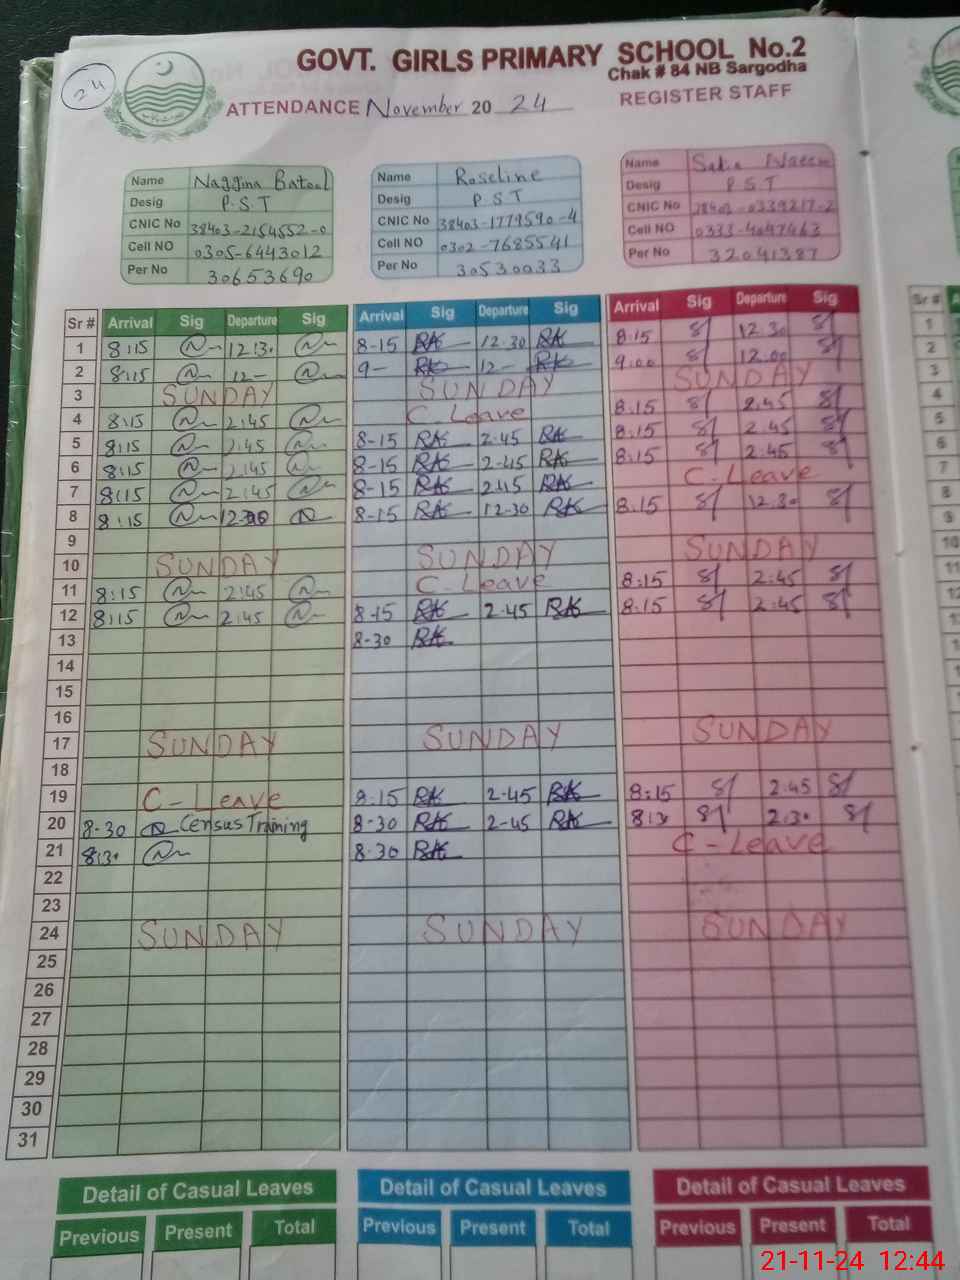 24
GOVT. GIRLS PRIMARY SCHOOL No.2
Chak # 84 NB Sargodha
ATTENDANCE November 20 24 REGISTER STAFF
Name Naggina Batool
Desig P.S.T
CNIC No 38403-2154552-0
Cell NO 0305-6443012
Per No 30653690
Name Roseline
Desig P S T
CNIC No 38403-1779590-4
Cell NO 0302-7685541
Per No 30530033
Name Naeem
Desig P.S.T
CNIC No -0339217-2
Cell NO 0333-4047463
Per No 32041387
Sr # Arrival Sig Departure Sig Arrival Sig Departure Sig Arrival Sig Departure Sig
1 8:15 12:30 8-15 RK 12-30 RK 8:15 12:30
2 8:15 12- 9- RK 12- RK 9:00 12:00
3 SUNDAY SUNDAY SUNDAY
4 8:15 2:45 C Leave 8:15 2:45
5 8:15 2:45 8-15 RK 2-45 RK 8:15 2:45
6 8:15 2:45 8-15 RK 2-45 RK 8:15 2:45
7 8:15 2:45 8-15 RK 2-45 RK C-Leave
8 8:15 8-15 RK 12-30 RK 8:15 12:30
9
10 SUNDAY SUNDAY SUNDAY
11 8:15 2:45 C-Leave 8:15 2:45
12 8:15 2:45 8-15 RK 2-45 RK 8:15 2:45
13 8-30 RK
14
15
16
17 SUNDAY SUNDAY SUNDAY
18
19 C-Leave 8-15 RK 2-45 RK 8:15 2:45
20 8-30 Census Training 8-30 RK 2-45 RK 8:30 2:30
21 8:30 8-30 RK C-Leave
22
23
24 SUNDAY SUNDAY SUNDAY
25
26
27
28
29
30
31
Detail of Casual Leaves Detail of Casual Leaves Detail of Casual Leaves
Previous Present Total Previous Present Total Previous Present Total
21-11-24 12:44